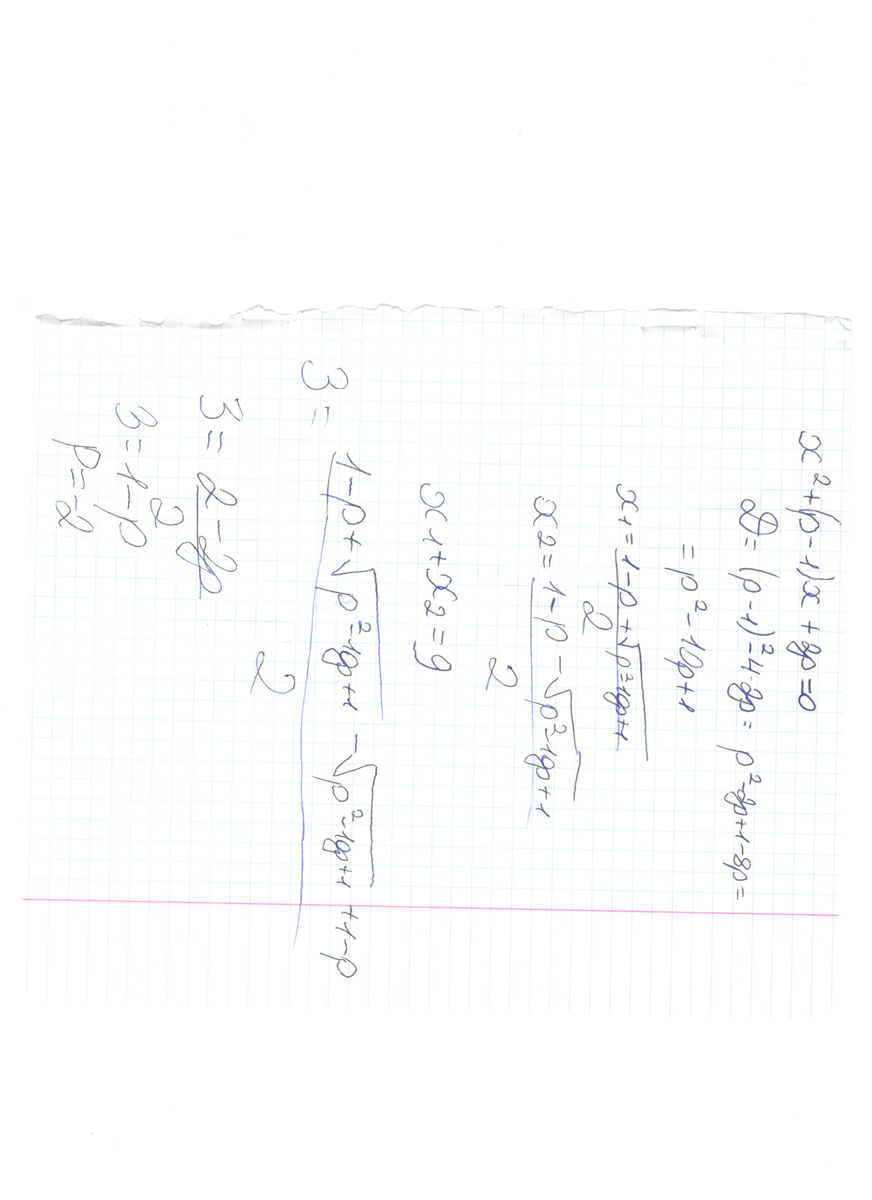 x²+(p-1)x+2p=0
D=(p-1)²-4·2p=p²-2p+1-8p=
=p²-10p+1
x1=(1-p+√(p²-10p+1))/2
x2=(1-p-√(p²-10p+1))/2
x1+x2=9
3=(1-p+√(p²-10p+1)-√(p²-10p+1)+1-p)/2
3=(2-2p)/2
3=1-p
p=-2